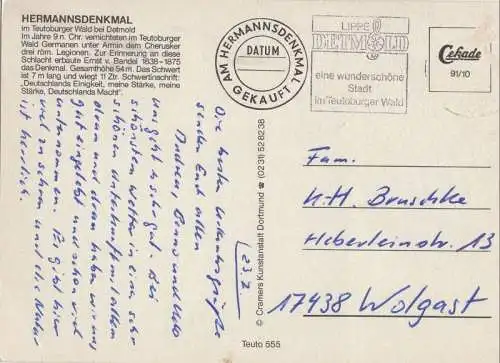 HERMANNSDENKMAL
im Teutoburger Wald bei Detmold
Im Jahre 9 n. Chr. vernichteten im Teutoburger
Wald Germanen unter Armin dem Cherusker
drei röm. Legionen. Zur Erinnerung an diese
Schlacht erbaute Ernst v. Bandel 1838-1875
das Denkmal. Gesamthöhe 54 m. Das Schwert
ist 7 m lang und wiegt 11 Ztr. Schwertinschrift:
„Deutschlands Einigkeit, meine Stärke, meine
Stärke, Deutschlands Macht".
AM HERMANNSDENKMAL
DATUM
GEKAUFT
LIPPE
DETMOLD
eine wunderschöne
Stadt
im Teutoburger Wald
Cekade
91/10
23.7.
Die besten Urlaubsgrüße
senden Euch allen
Andrea, und
uns geht es sehr gut. Bei
schönstem Wetter in einer sehr
schönen Unterkunft mit allem
drum und dran haben wir uns
gut eingelebt und schon viel
unternommen. Es gibt hier
viel zu schauen und die Natur
ist herrlich.
© Cramers Kunstanstalt Dortmund ☎ (0231) 52 82 38
Fam.
H.H. Bruschke
Heberleinstr. 13
17438 Wolgast
Teuto 555